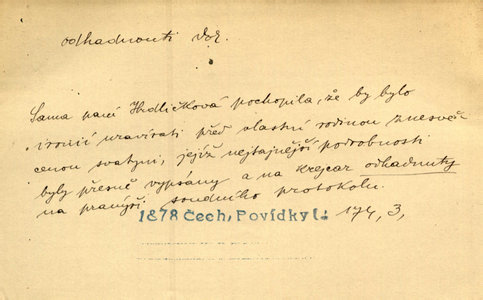 odhadnouti dok.
Sama paní Hrdličková pochopila, že by bylo
ironií uzavírati před vlastní rodinou znesvě-
cenou svatyni, jejíž nejtajnější podrobnosti
byly přesně vypsány a na krejcar odhadnuty
na pranýři soudního protokolu.
1878 Čech, Povídky I. 174, 3,